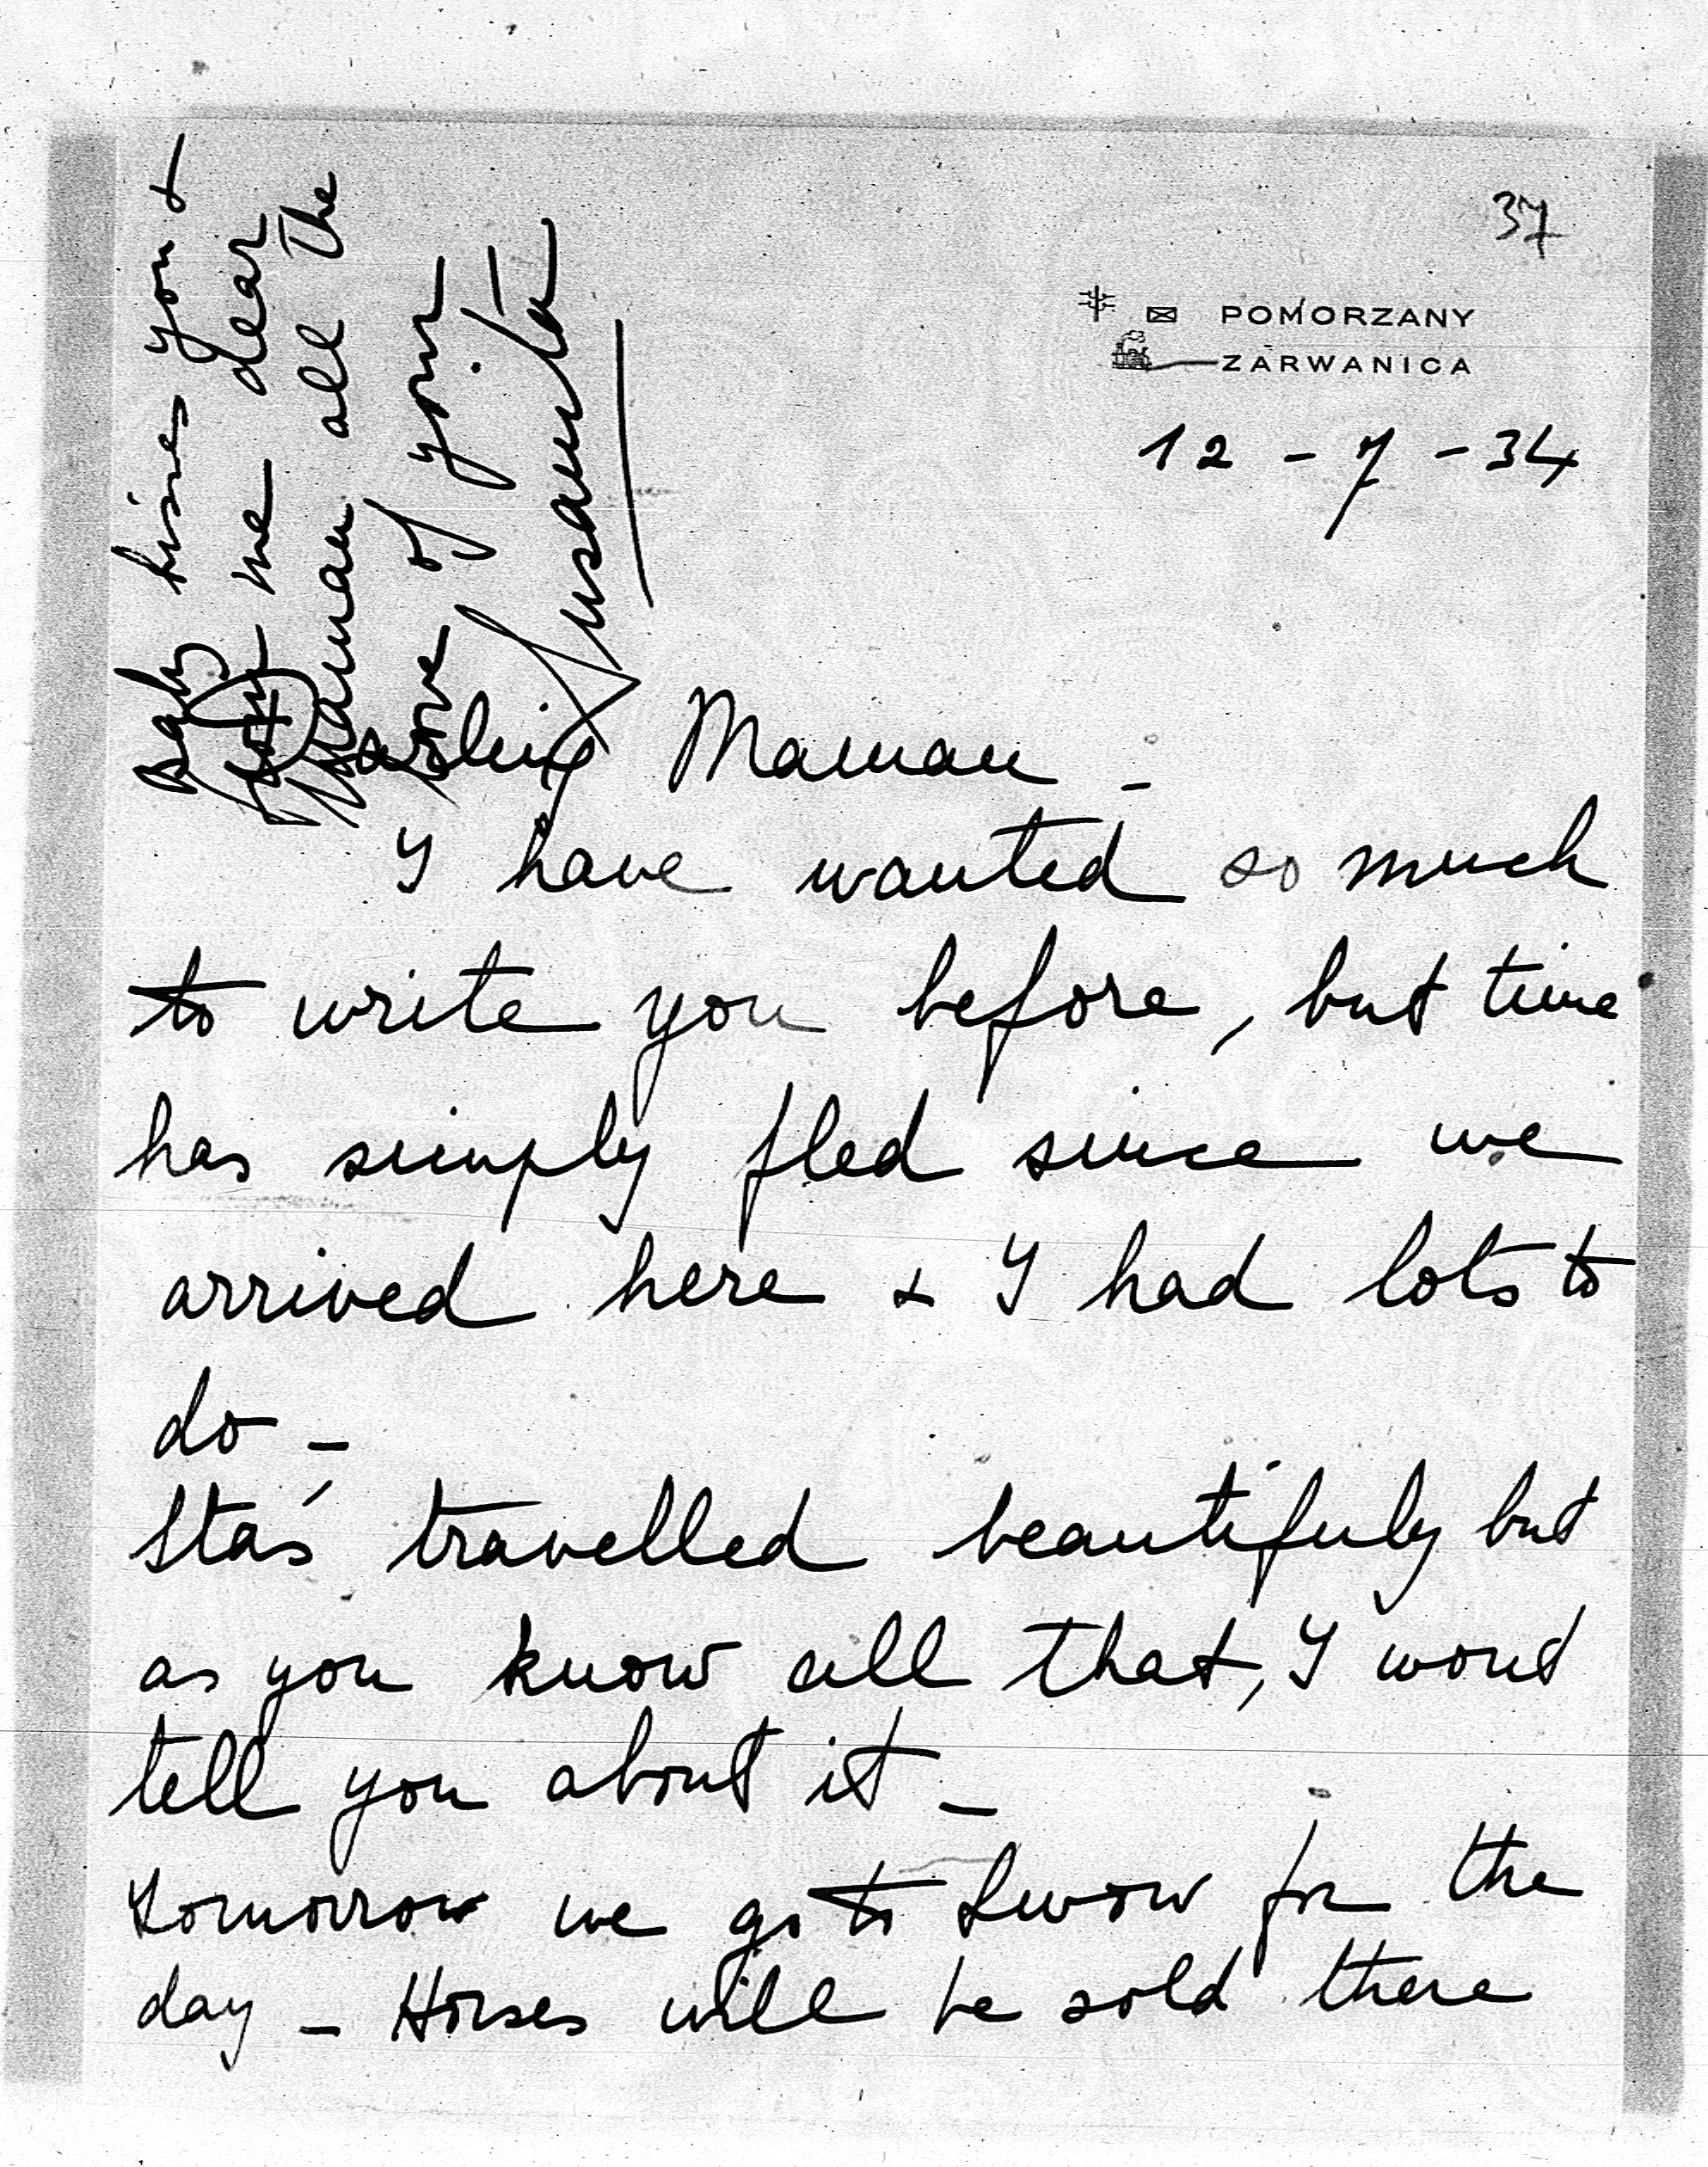 37
POMORZANY
ZARWANICA
12 - 7 - 34
Darling Maman -
I have wanted so much
to write you before, but time
has simply fled since we
arrived here & I had lots to
do -
Staś travelled beautifuly but
as you know all that, I wont
tell you about it -
Tomorrow we go to Lwow for the
day - Horses will be sold there
Baby kisses you &
from me dear
Maman all the
love of your
Susanita